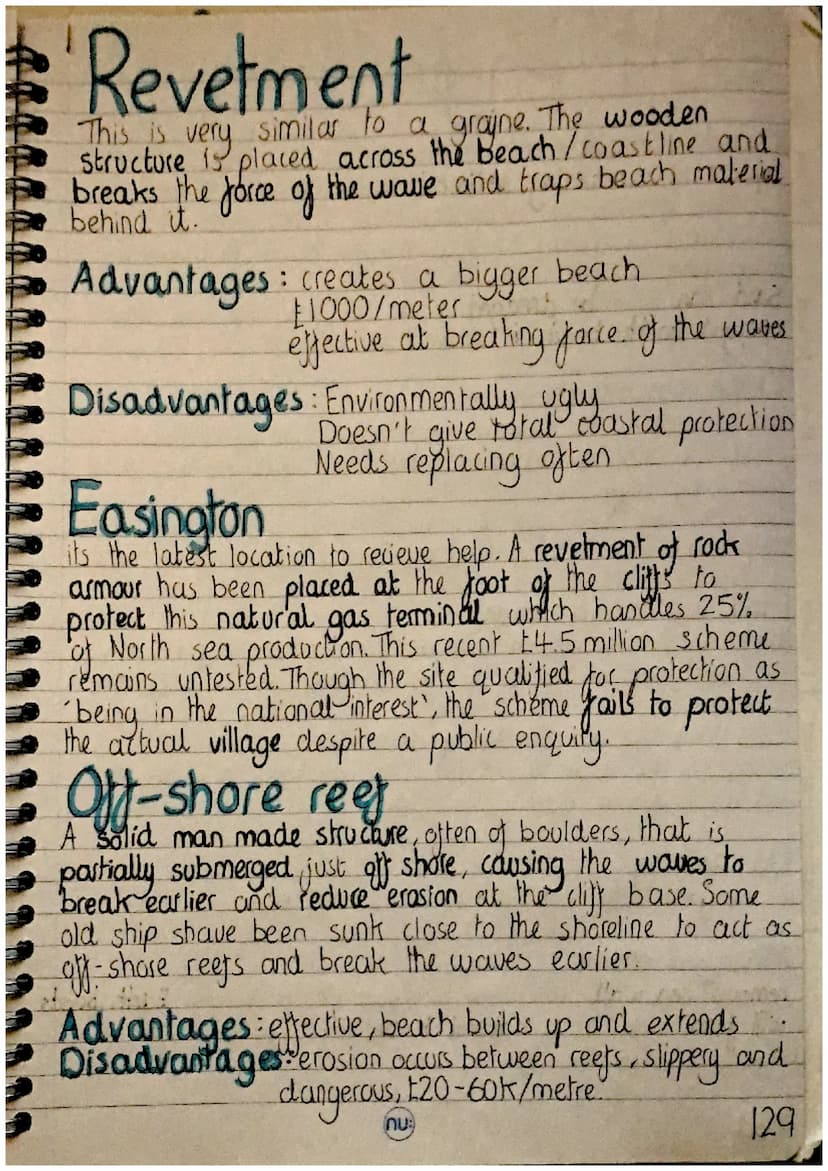 Revetment
This is very similar to a groyne. The wooden
structure is placed across the beach/coastline and
breaks the force of the wave and traps beach material
behind it.
Advantages: creates a bigger beach
£1000/meter
effective at breaking force. of the waves
Disadvantages: Environmentally ugly
Doesn't give total coastal protection
Needs replacing often
Easington
its the latest location to recieve help. A revetment of rock
armour has been placed at the foot of the cliffs to
protect this natural gas terminal which handles 25%
of North sea production. This recent £4.5 million scheme
remains untested. Though the site qualified for protection as
'being in the national interest', the scheme fails to protect
the actual village despite a public enquiry.
Off-shore reef
A solid man made structure, often of boulders, that is
partially submerged just off shore, causing the waves to
break earlier and reduce erosion at the cliff base. Some
old ship shave been sunk close to the shoreline to act as
off-shore reefs and break the waves earlier.
Advantages: effective, beach builds up and extends
Disadvantages: erosion occurs between reefs, slippery and
dangerous, £20-60k/metre.
nu:
129